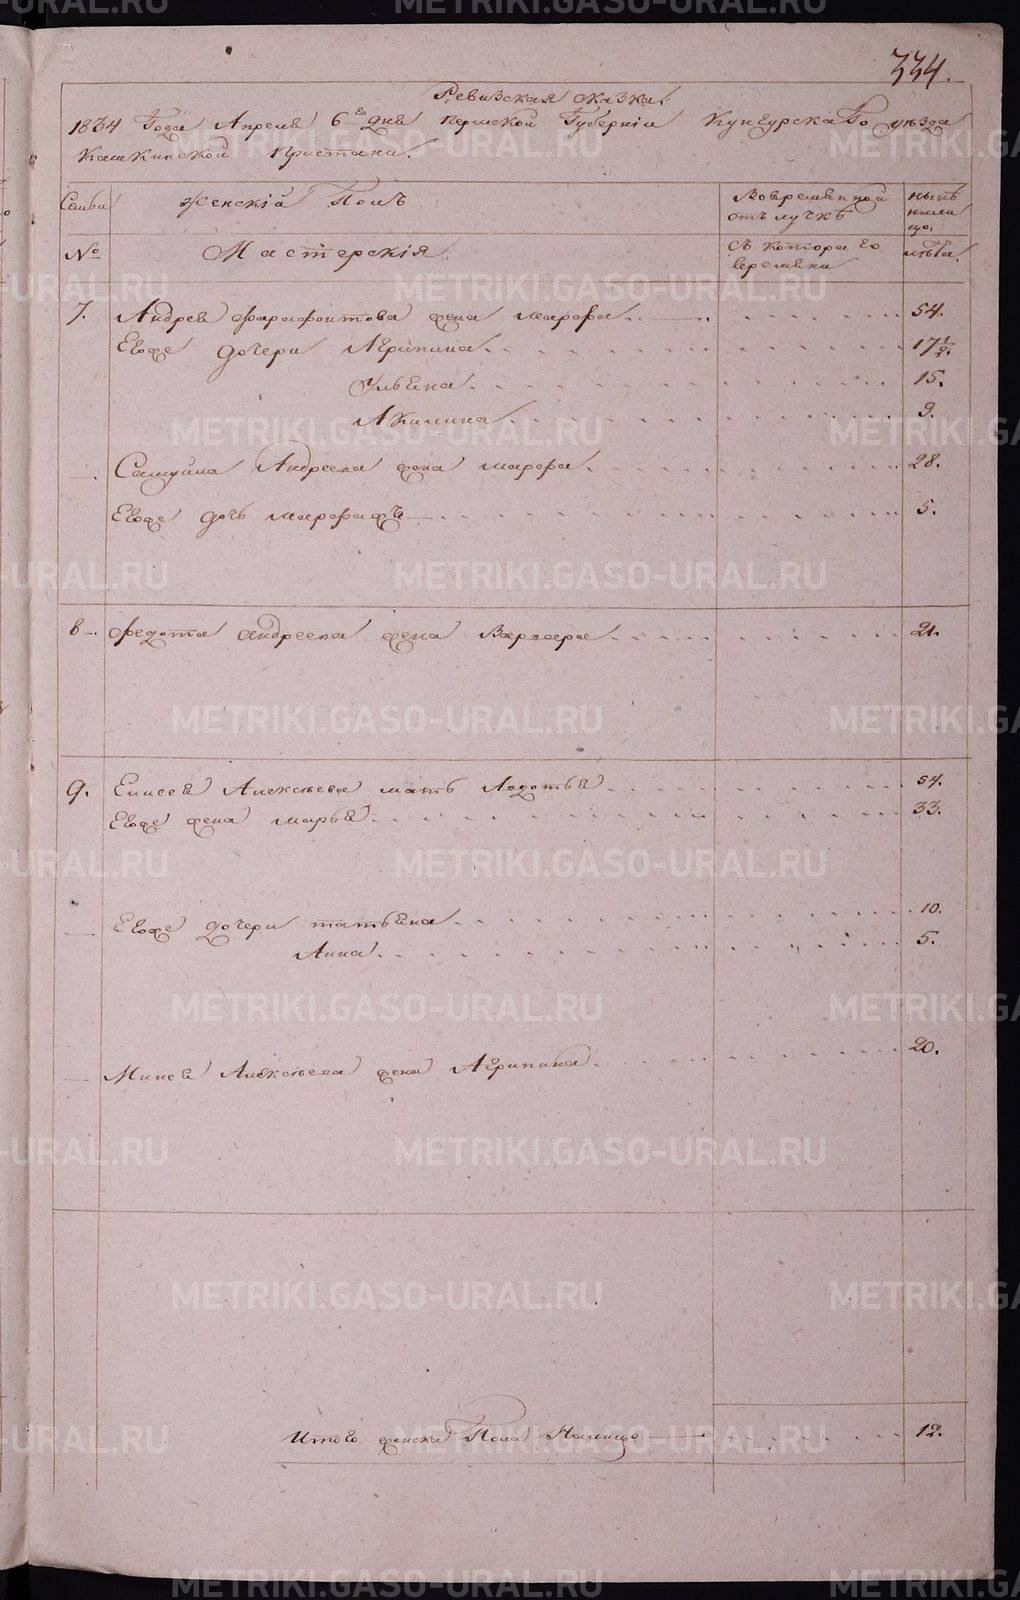 334.
Ревизская сказка.
1834 Года Апреля 6го дня Пермской Губернiи Кунгурскаго уезда
Кашкинской Пристани.
Семьи
Женскiй Полъ
Вовременной отълучкъ
нынъ налицо.
№
Мастерскiя.
Съ котораго времяни
лъта.
7. Андрея Фарафонтова жена Марфа 54.
Евоже дочери Агрипина 17 1/2.
Ульяна 15.
Акилина 9.
Самуила Андреева жена Марфа. 28.
Евоже дочь 5.
8. Федота Андреева жена Варвара 21.
9. Елисея Алексъева мать Авдотья 54.
Евоже жена Марья 33.
Евоже дочери Татьяна 10.
Анна 5.
Минея Алексъева жена Агрипина 20.
Итого женска Пола Налицо 12.
METRIKI.GASO-URAL.RU